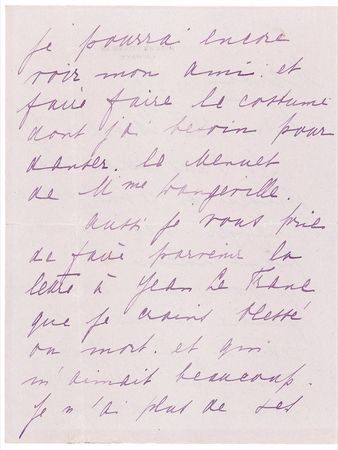 je pourrai encore
voir mon ami. et
faire faire le costume
dont j'ai besoin pour
danser. le Menuet
de Mme Dangeville.
aussi je vous prie
de faire parvenir la
lettre à Jean Le Franc
que je crains blessé
ou mort. et qui
m'aimait beaucoup.
je n'ai plus de ses